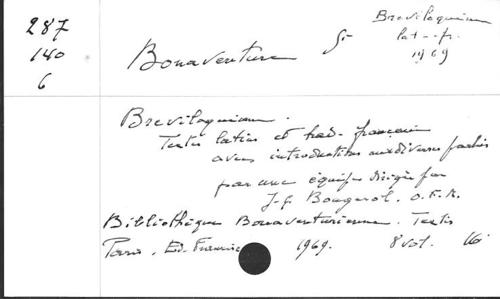 287
140
6
Bonaventure St
Breviloquium
lat-fr.
1969
Breviloquium.
Texte latin et trad. français
avec introductions aux diverses parties
par une équipe dirigée par
J-G Bougerol. O.F.M.
Bibliothèque Bonaventurienne. Textes
Paris. Ed. Francisc 1969. 8 vol. 16°